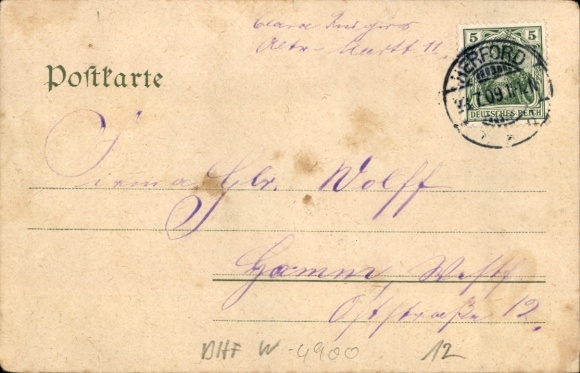 Clara
Markt 11
5 5
HERFORD
7.09 11-12
DEUTSCHES REICH
Postkarte
Firma Gbr. Wolff
Hamm, Westf
Oststraße 12.
DHF W-4900 12